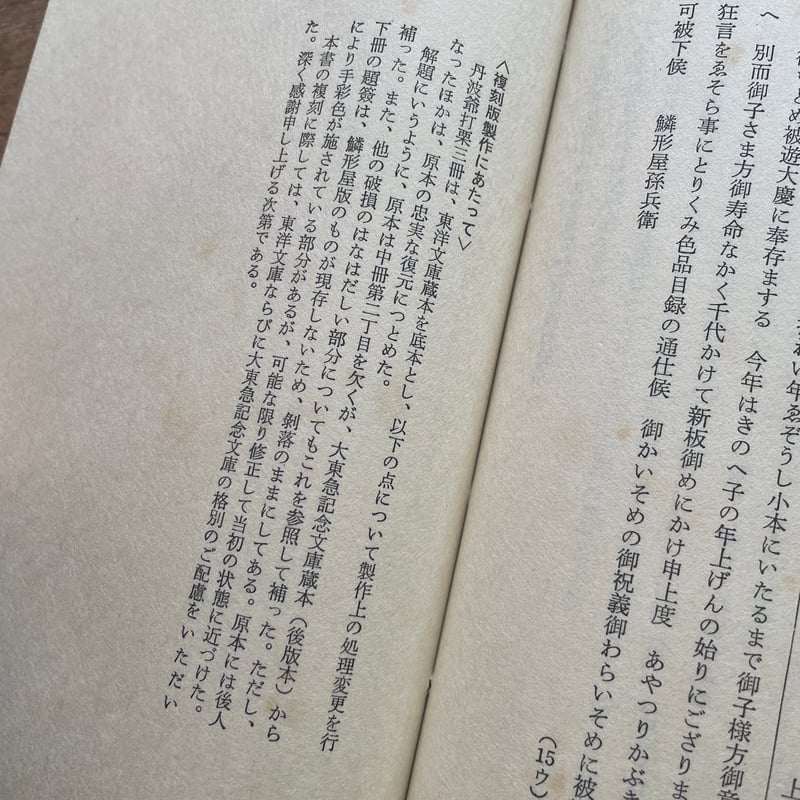 上
い年ゑぞうし小本にいたるまで御子様方御意
とめ被遊大慶に奉存まする　今年はきのへ子の年上げんの始りにござりま
へ　別而御子さま方御寿命なかく千代かけて新板御めにかけ申上度　あやつりかぶき
狂言をゑそら事にとりくみ色品目録の通仕候　御かいそめの御祝義御わらいそめに被
可被下候　鱗形屋孫兵衛
（15ウ）
〈複刻版製作にあたって〉
丹波爺打栗三冊は、東洋文庫蔵本を底本とし、以下の点について製作上の処理変更を行
なったほかは、原本の忠実な復元につとめた。
解題にいうように、原本は中冊第二丁目を欠くが、大東急記念文庫蔵本（後版本）から
補った。また、他の破損のはなはだしい部分についてもこれを参照して補った。ただし、
下冊の題簽は、鱗形屋版のものが現存しないため、剝落のままにしてある。原本には後人
により手彩色が施されている部分があるが、可能な限り修正して当初の状態に近づけた。
本書の複刻に際しては、東洋文庫ならびに大東急記念文庫の格別のご配慮をいただい
た。深く感謝申し上げる次第である。